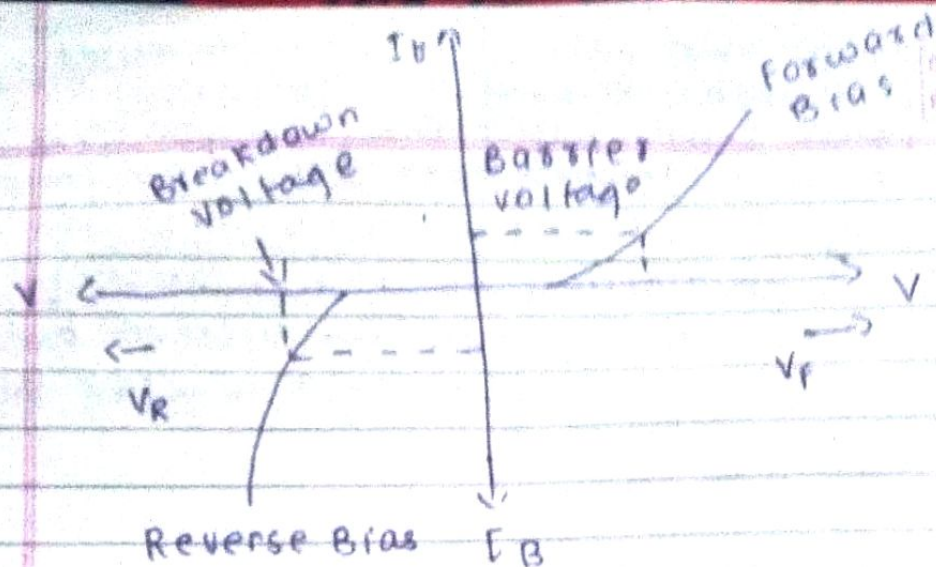 ID
Forward
Bias
Breakdown
voltage
Barrier
voltage
V
V
VR
VF
Reverse Bias
IB